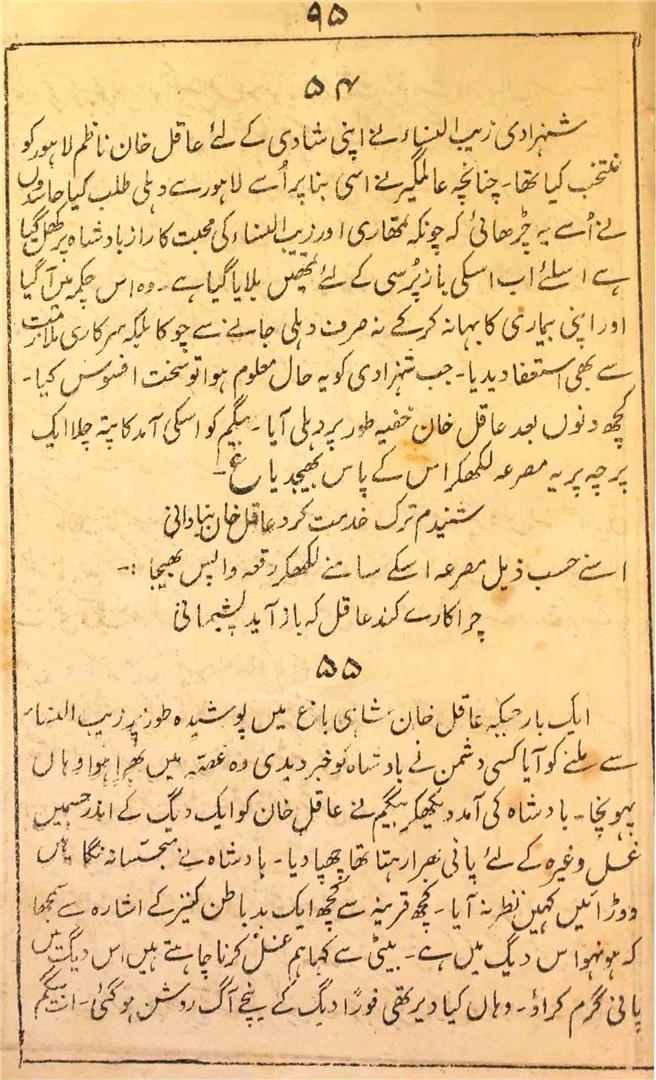 ۹۵
۵۴
شہزادی زیب النساء نے اپنی شادی کے لئے عاقل خان ناظم لاہور کو
منتخب کیا تھا۔ چنانچہ عالمگیر نے اسی بنا پر اُسے لاہور سے دہلی طلب کیا حاسدوں
نے اُسے یہ چڑھائی کہ چونکہ تمھاری اور زیب النساء کی محبت کا راز بادشاہ پر کھل گیا
ہے اسلئے اب اسکی باز پُرسی کے لئے تمھیں بلایا گیا ہے۔ وہ اس چکمہ میں آگیا
اور اپنی بیماری کا بہانہ کرکے نہ صرف دہلی جانے سے چوکا بلکہ سرکاری ملازمت
سے بھی استعفا دیدیا۔ جب شہزادی کو یہ حال معلوم ہوا تو سخت افسوس کیا۔
کچھ دنوں بعد عاقل خان خفیہ طور پر دہلی آیا۔ بیگم کو اسکی آمد کا پتہ چلا ایک
پرچہ پر یہ مصرعہ لکھکر اس کے پاس بھیجدیا ع۔
شنیدم ترک خدمت کرد عاقل خان بنادانی
اسنے حسب ذیل مصرعہ اسکے سامنے لکھکر رقعہ واپس بھیجا :۔
چرا کارے کند عاقل کہ باز آید پشیمانی
۵۵
ایک بار جبکہ عاقل خان شاہی باغ میں پوشیدہ طور پر زیب النساء
سے ملنے کو آیا کسی دشمن نے بادشاہ کو خبر دیدی وہ غصہ میں بھرا ہوا وہاں
پہونچا۔ بادشاہ کی آمد دیکھکر بیگم نے عاقل خان کو ایک دیگ کے اندر جسمیں
غسل وغیرہ کے لئے پانی بھرا رہتا تھا چھپا دیا۔ بادشاہ نے متجسسانہ نگاہیں
دوڑائیں کہیں نظر نہ آیا۔ کچھ قرینہ سے کچھ ایک بد باطن کنیز کے اشارہ سے سمجھا
کہ ہو نہو اس دیگ میں ہے۔ بیٹی سے کہا ہم غسل کرنا چاہتے ہیں اس دیگ میں
پانی گرم کراؤ۔ وہاں کیا دیر تھی فوراً دیگ کے نیچے آگ روشن ہوگئی۔ بیگم